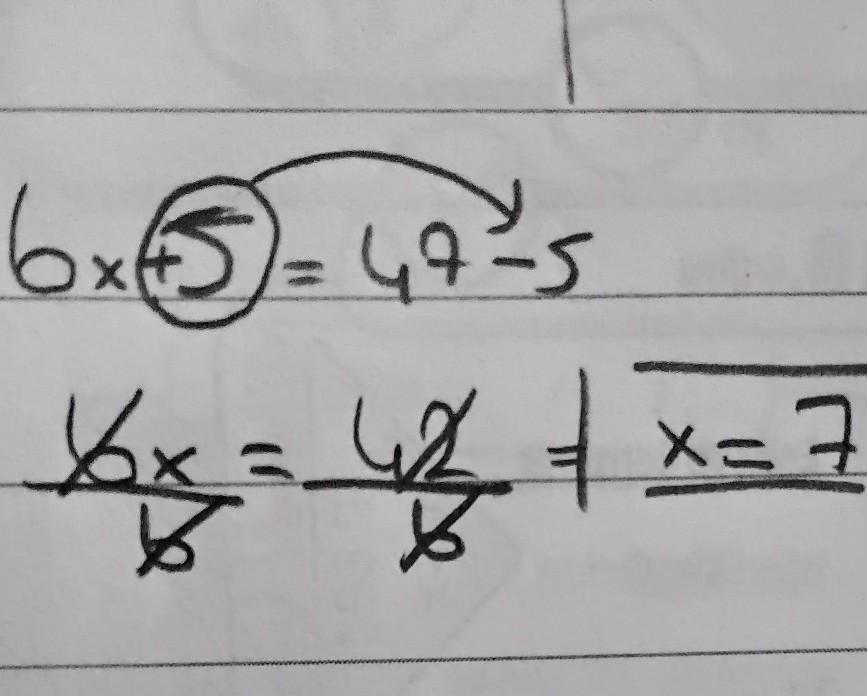 6x+5 = 47-5
6x/6 = 42/6 = | x = 7